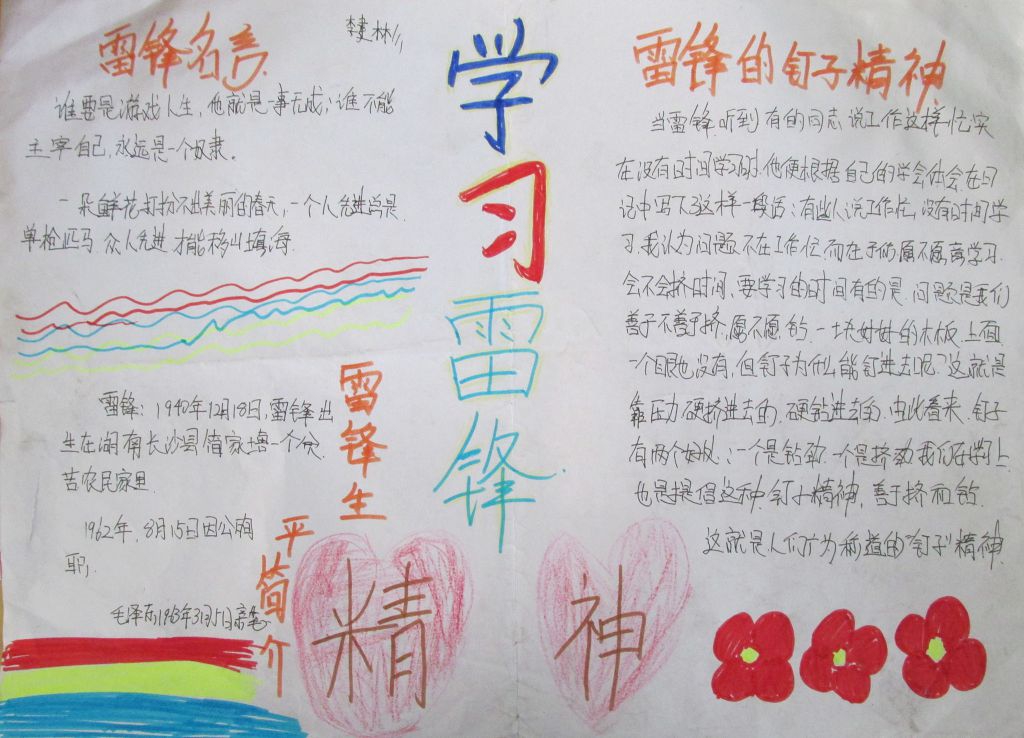 雷锋名言
谁要是游戏人生，他就是一事无成；谁不能
主宰自己，永远是一个奴隶。
一朵鲜花打扮不出美丽的春天，一个人先进总是
单枪匹马 众人先进才能移山填海.
学习雷锋
精神
雷锋生
平简介
雷锋：1940年12月18日，雷锋出
生在湖南长沙县简家塘一个贫
苦农民家里
1962年，8月15日因公殉
职，
毛泽东1963年3月5日亲笔
雷锋的钉子精神
当雷锋听到有的同志说工作这样忙实
在没有时间学习时.他便根据自己的学会体会在日
记中写下了这样一段话：有些人说工作忙，没有时间学
习.我认为问题不在工作忙而在于你愿不愿意学习.
会不会挤时间、要学习的时间有的是.问题是我们
善于不善于挤，愿不愿钻.一块好好的木板.上面
一个眼也没有.但钉子为什么能钉进去呢？这就是
靠压力硬挤进去的，硬钻进去的.由此看来.钉子
有两个好处：一个是钻劲.一个是挤劲我们在学习上
也是提倡这种.钉子精神，善于挤和钻.
这就是人们广为称道的"钉子"精神.